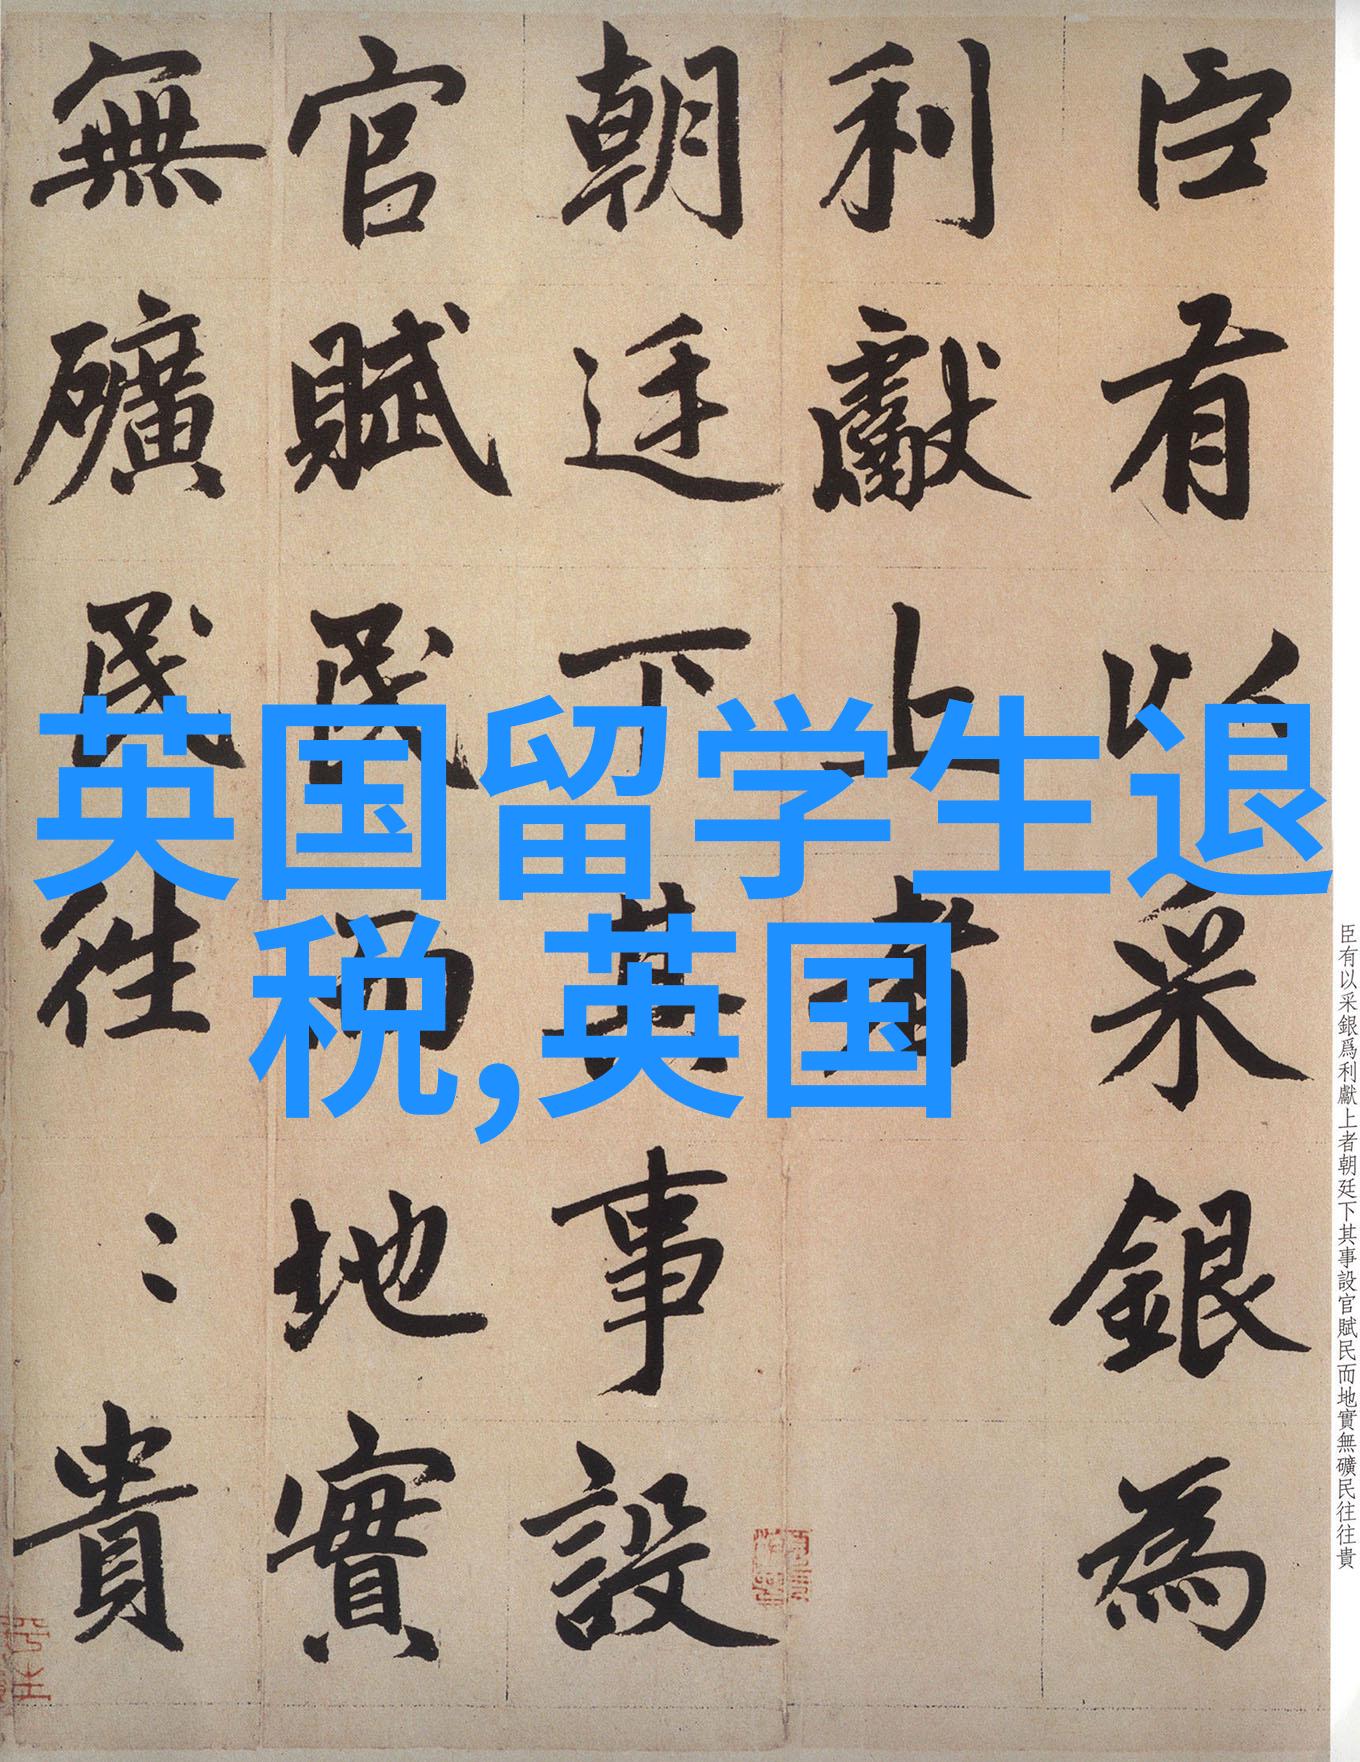 臣有以采銀為
利獻上者
朝廷下其事設
官賦民而地實
無礦民往〻貴
英国留学生退
税,英国
臣有以采銀爲利獻上者朝廷下其事設官賦民而地實無礦民往往貴